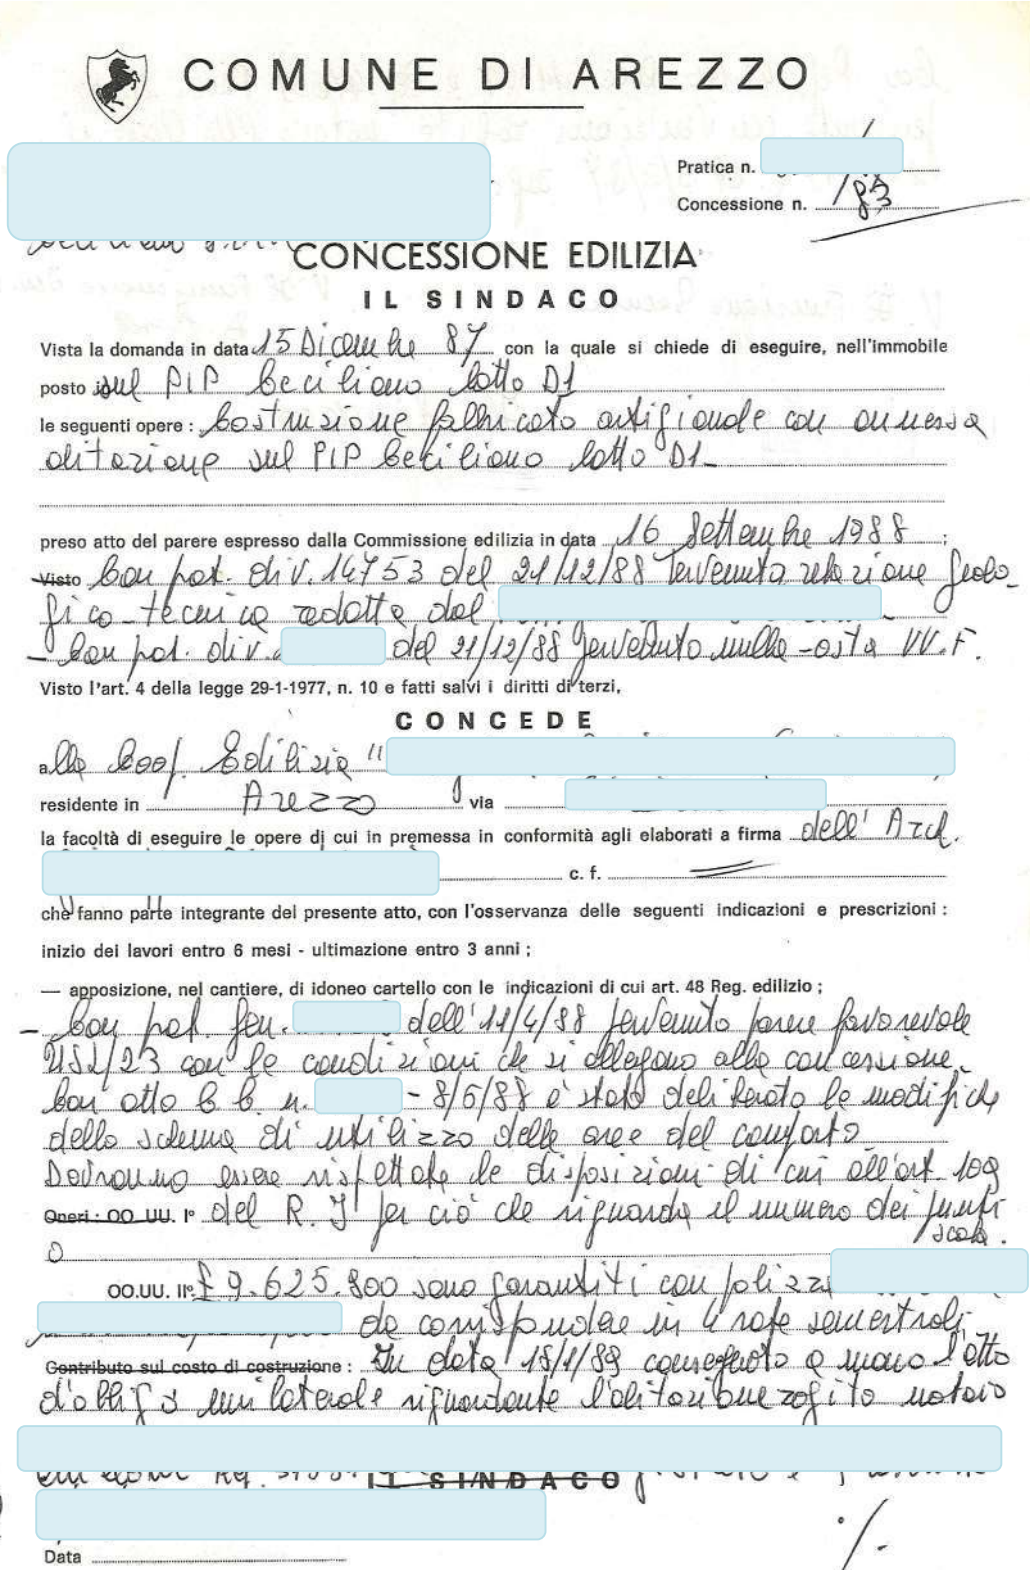 COMUNE DI AREZZO
Pratica n.
Concessione n. /83
CONCESSIONE EDILIZIA
IL SINDACO
Vista la domanda in data 15 Dicembre 87 con la quale si chiede di eseguire, nell'immobile
posto sul PIP Beciliano lotto D1
le seguenti opere : Costruzione fabbricato artigianale con annessa
abitazione sul PIP Beciliano lotto D1
preso atto del parere espresso dalla Commissione edilizia in data 16 Settembre 1988 ;
Visto Con pot. div. 14753 del 21/12/88 pervenuta relazione geolo-
gico-tecnica redatta dal
- Con pot. div. del 21/12/88 pervenuto nulla-osta VV.F.
Visto l'art. 4 della legge 29-1-1977, n. 10 e fatti salvi i diritti di terzi,
CONCEDE
alla Coop. Edilizia "
residente in Arezzo via
la facoltà di eseguire le opere di cui in premessa in conformità agli elaborati a firma dell' Arch.
c. f.
che fanno parte integrante del presente atto, con l'osservanza delle seguenti indicazioni e prescrizioni :
inizio dei lavori entro 6 mesi - ultimazione entro 3 anni ;
— apposizione, nel cantiere, di idoneo cartello con le indicazioni di cui art. 48 Reg. edilizio ;
- Con pot. gen. dell'11/4/88 pervenuto parere favorevole
USL/23 con le condizioni che si allegano alla concessione.
Con atto C.C. n. - 8/6/88 è stato deliberato le modifiche
dello schema di utilizzo delle aree del comparto
Dovranno essere rispettate le disposizioni di cui all'art. 109
Oneri : OO. UU. Iº del R. I per ciò che riguarda il numero dei punti
scala.
OO.UU. IIº £ 9.625.800 sono garantiti con polizza
da corrispondere in 4 rate semestrali
Contributo sul costo di costruzione : In data 18/1/89 consegnato a mano l'atto
d'obbligo unilaterale riguardante l'abitazione rogito notaio
Reg.
IL SINDACO
Data
./.